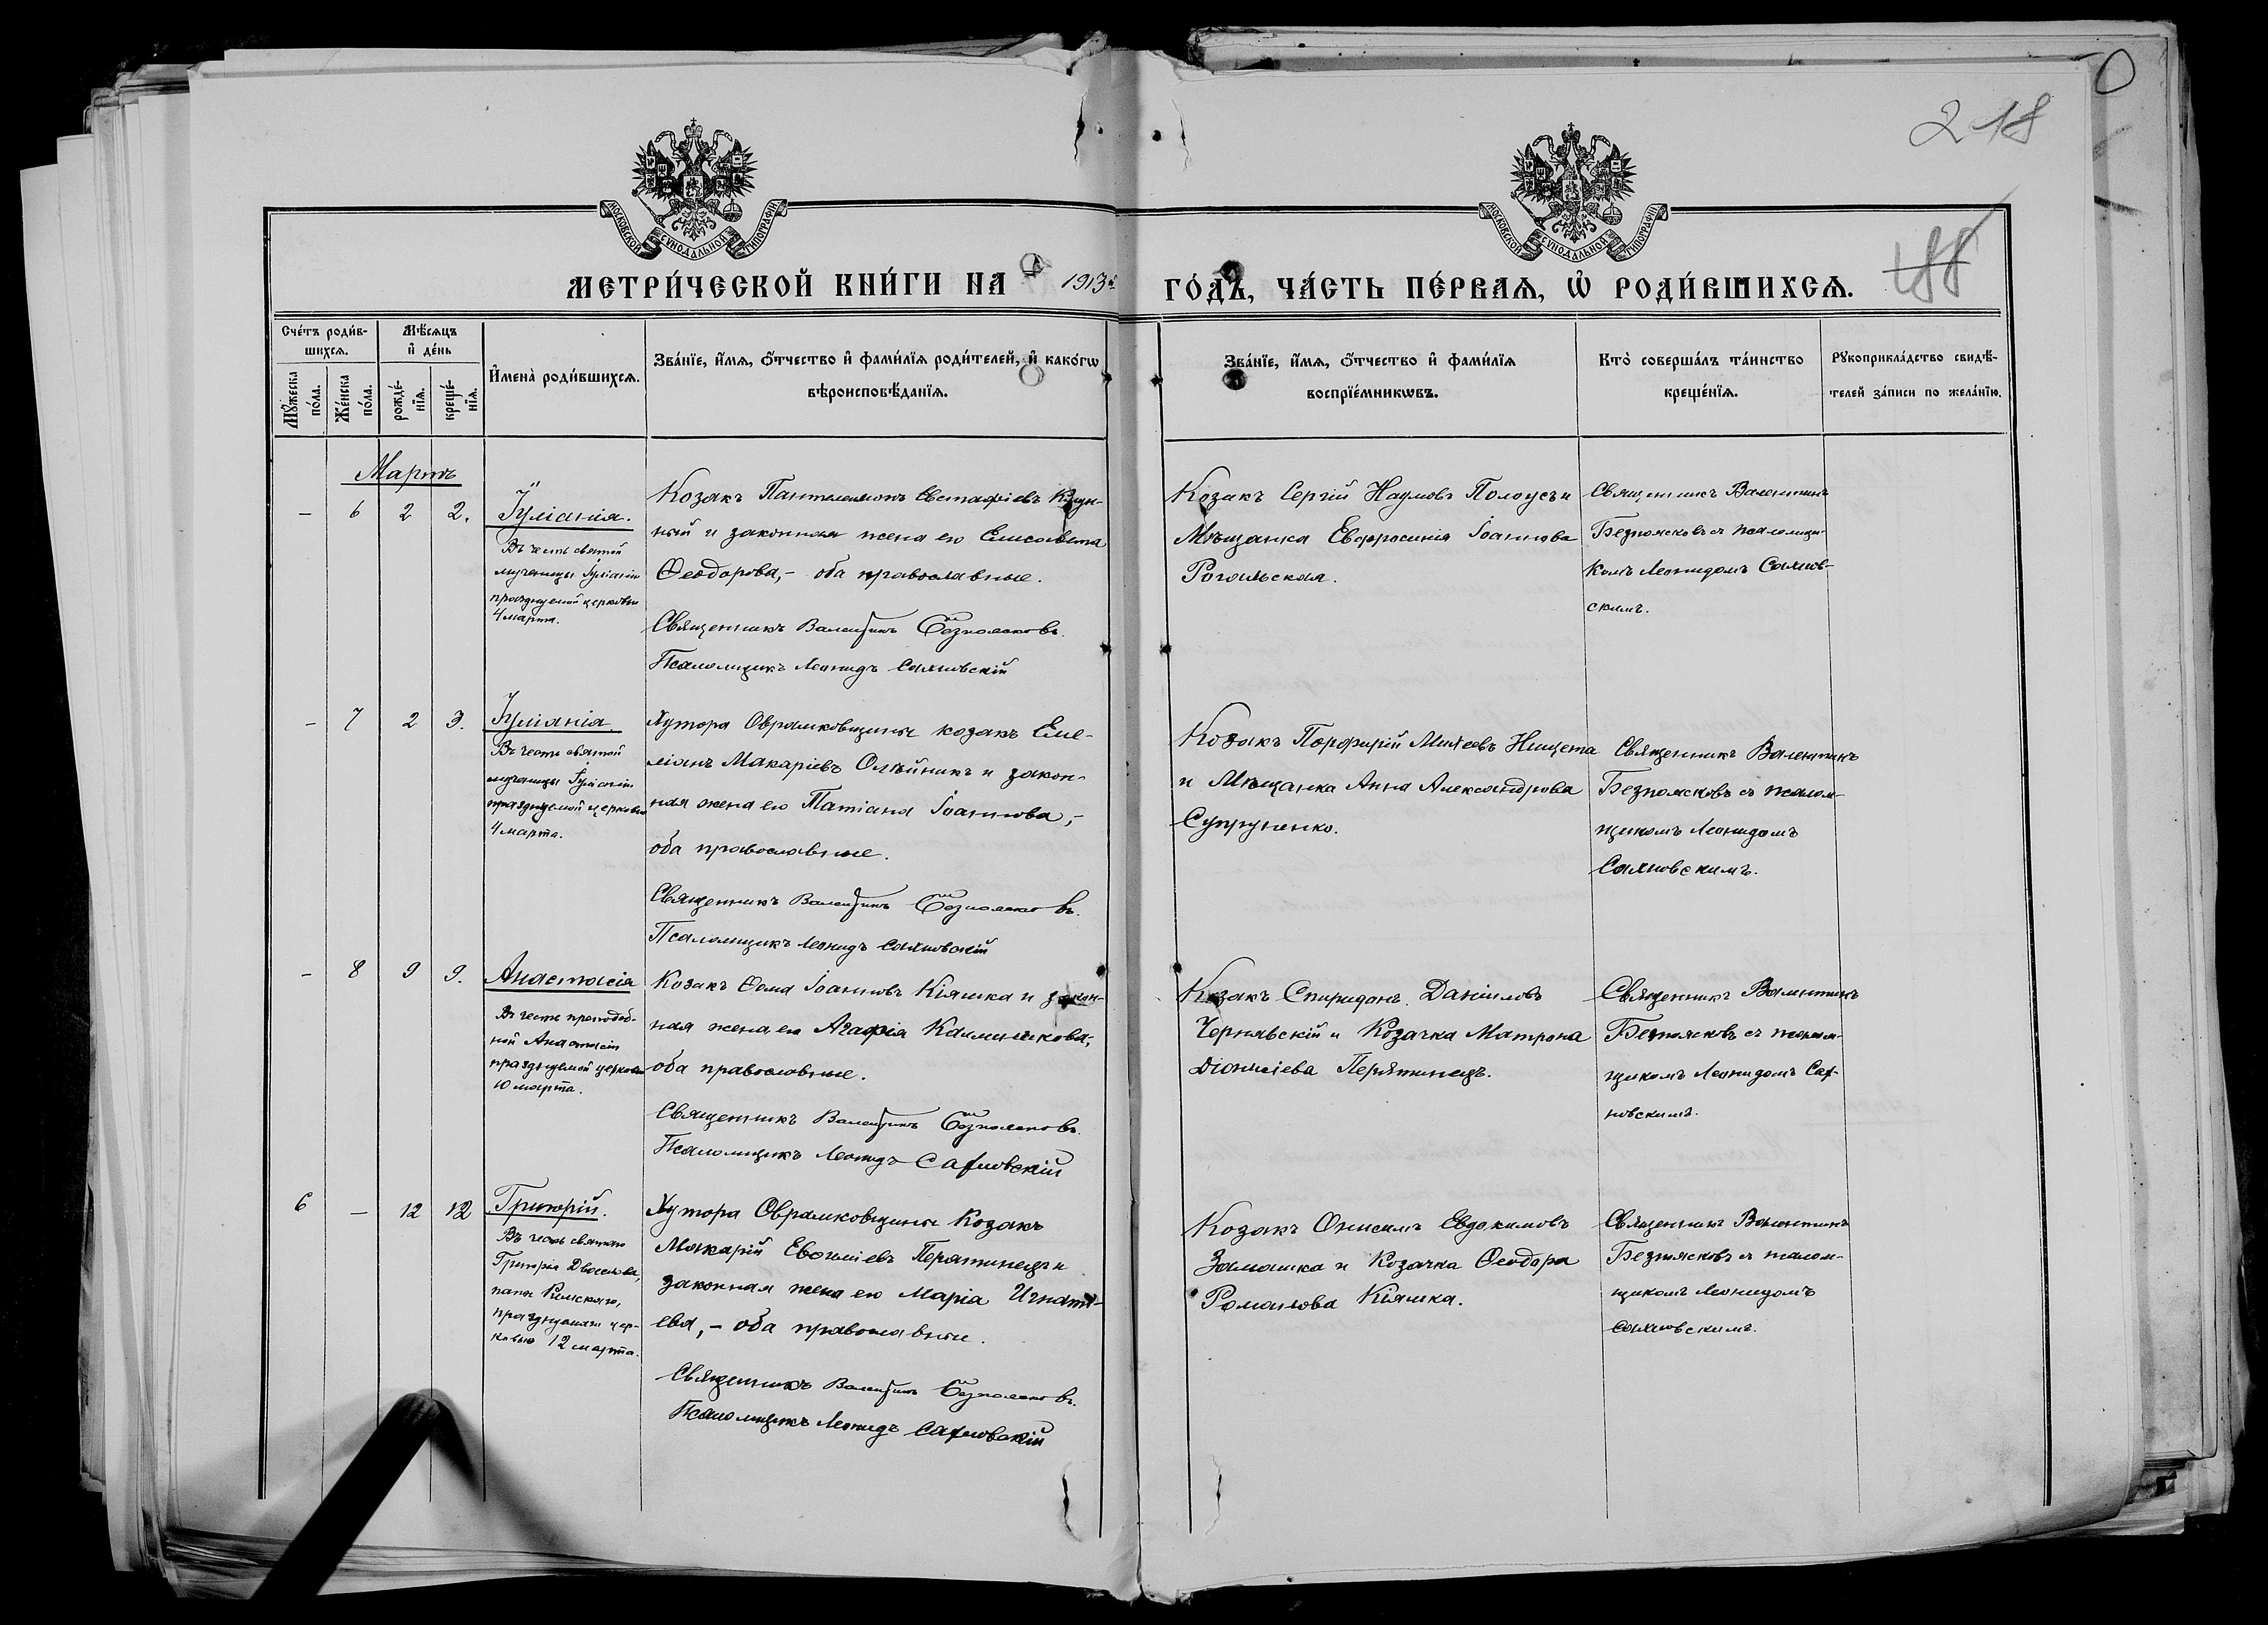 218
188
МОСКОВСКОЙ СѴНОДАЛЬНОЙ ТИПОГРАФІИ
МОСКОВСКОЙ СѴНОДАЛЬНОЙ ТИПОГРАФІИ
МЕТРИ́ЧЕСКОЙ КНИ́ГИ НА 1913й ГО́ДЪ, ЧА́СТЬ ПЕ́РВАѦ, Ѡ РОДИ́ВШИХСѦ.
Сче́тъ роди́в-
шихсѧ.
Мѣ́сѧцъ
и҆ де́нь
Мꙋ́жеска
по́ла.
Же́нска
по́ла.
рожде́-
нїѧ.
креще́-
нїѧ.
И҆мена̀ роди́вшихсѧ.
Зва́нїе, и҆́мѧ, ѻ҆́тчество и҆ фами́лїѧ роди́телей, и҆ како́гѡ
вѣроисповѣ́данїѧ.
Зва́нїе, и҆́мѧ, ѻ҆́тчество и҆ фами́лїѧ
воспрїе́мникѡвъ.
Кто̀ соверша́лъ та́инство
креще́нїѧ.
Рꙋкоприкла́дство свидѣ́-
телей за́писи по жела́нїю.
Мартъ
– 6 2 2.
Іуліанія.
Въ честь святой
мученицы Іуліаніи
празднуемой церковью
4 марта.
Козакъ Пантелеимонъ Евстафіевъ
ный и законная жена его Елисавета
Ѳеодорова,– оба православные.
Священникъ Валентинъ Безпоясковъ.
Псаломщикъ Леонидъ Сахновскій
Козакъ Сергій Наумовъ Полоусъ и
Мѣщанка Евфросинія Іоаннова
Рогальская.
Священникъ Валентинъ
Безпоясковъ съ псаломщи-
комъ Леонидомъ Сахнов-
скимъ.
– 7 2 3.
Іуліанія.
Въ честь святой
мученицы Іуліаніи
празднуемой церковью
4 марта.
Хутора Оврамковщины козакъ Еме-
ліанъ Макаріевъ Олѣйникъ и закон-
ная жена его Татіана Іоаннова,–
оба православные.
Священникъ Валентинъ Безпоясковъ.
Псаломщикъ Леонидъ Сахновскій
Козакъ Порфирій Михеевъ Нищета
и Мѣщанка Анна Александрова
Супруненко.
Священникъ Валентинъ
Безпоясковъ съ псалом-
щикомъ Леонидомъ
Сахновскимъ.
– 8 9 9.
Анастасія
Въ честь преподоб-
ной Анастасіи
празднуемой церковью
10 марта.
Козакъ Ѳома Іоанновъ Кіяшка и закон-
ная жена его Агафія Каллиникова,
оба православные.
Священникъ Валентинъ Безпоясковъ.
Псаломщикъ Леонидъ Сахновскій
Козакъ Спиридонъ Даніиловъ
Чернявскій и Козачка Матрона
Діонисіева Перятинецъ.
Священникъ Валентинъ
Безпоясковъ съ псалом-
щикомъ Леонидомъ Сах-
новскимъ.
6 – 12 12
Григорій.
Въ честь святаго
Григорія Двоеслова,
папы Римскаго,
празднуемаго цер-
ковью 12 марта.
Хутора Оврамковщины Козакъ
Макарій Евѳиміевъ Перятинецъ и
законная жена его Марія Игнаті-
ева,– оба православные.
Священникъ Валентинъ Безпоясковъ.
Псаломщикъ Леонидъ Сахновскій
Козакъ Онисимъ Евдокимовъ
и Козачка Ѳеодора
Романова Кіяшка.
Священникъ Валентинъ
Безпоясковъ съ псалом-
щикомъ Леонидомъ
Сахновскимъ.